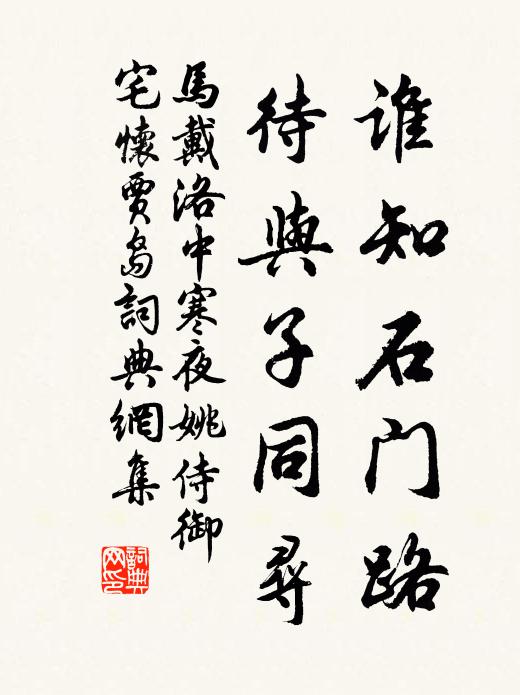 谁知石门路
待與子同尋
馬戴洛中寒夜姚侍御
宅懷賈島詞典網集
詞典
网印